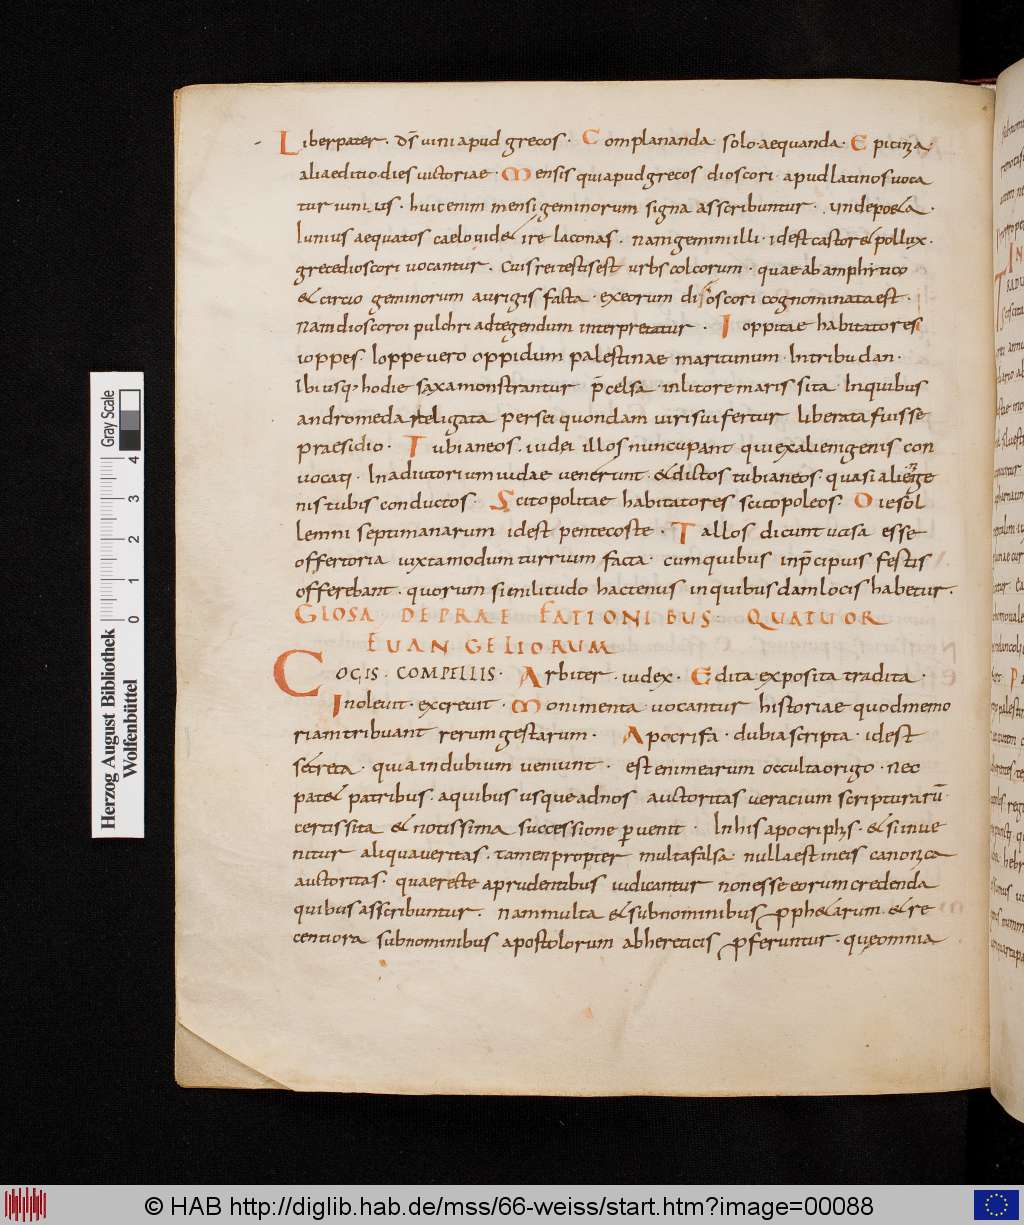 Liber pater. ds̄ uini apud grecos. Complananda solo aequanda. Epicinza
alia editio. dies uictoriae. Mensis qui apud grecos dioscori. apud latinos uoca
tur iunius. huic enim mensi geminorum signa asscribuntur. unde poeta.
Iunius aequatos caelo uidet ire laconas. nam gemini illi. id est castor et pollux.
grece dioscori uocantur. cuius rei testis est urbs colcorum. quae ab amphitico
et circio geminorum aurigis facta. ex eorum dioscori cognominata est.
nam dioscoroi pulchri ad tegendum interpretatur. Ioppitae habitatores
ioppes. Ioppe uero oppidum palestinae maritimum. In tribu dan.
Ibi usq; hodie saxa monstrantur p̄celsa in litore maris sita. In quibus
andromeda religata persei quondam uiri sui fertur liberata fuisse
praesidio. Tubianeos. iudei illos nuncupant qui ex alienigenis con
uocati. In adiutorium iudae uenerunt. et dictos tubianeos. quasi alienige
nis tubis conductos. Scitopolitae habitatores scitopoleos. Die sol
lemni septimanarum id est pentecoste. Tallos dicunt uasa esse
offertoria iuxta modum turrium facta. cum quibus in p̄cipuis festis
offerebant. quorum similitudo hactenus in quibusdam locis habetur.
GLOSA DE PRAEFATIONIBUS. QUATUOR
EUANGELIORUM
COGIS. COMPELLIS. Arbiter. iudex. Edita exposita tradita.
Inoleuit. excreuit. Monimenta uocantur historiae quod memo
riam tribuant rerum gestarum. Apocrifa. dubia scripta. id est
secreta. quia in dubium ueniunt. est enim earum occulta origo. nec
patet patribus. a quibus usque ad nos auctoritas ueracium scripturarū.
certissita et notissima successione puenit. In his apocriphis. et si inue
nitur aliqua ueritas. tamen propter multa falsa. nulla est in eis canonica
auctoritas. quae recte a prudentibus iudicantur non esse eorum credenda
quibus asscribuntur. nam multa et sub nominibus pphetarum. et re
centiora sub nominibus apostolorum ab hereticis pferuntur. quę omnia
Herzog August Bibliothek
Wolfenbüttel
Gray Scale
0 1 2 3 4
© HAB http://diglib.hab.de/mss/66-weiss/start.htm?image=00088